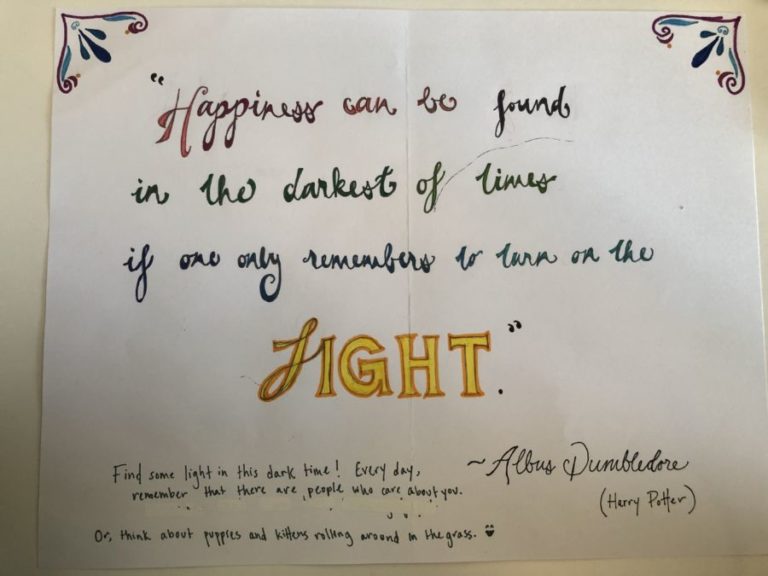 "Happiness can be found
in the darkest of times
if one only remembers to turn on the
LIGHT."
~Albus Dumbledore
(Harry Potter)
Find some light in this dark time! Every day,
remember that there are people who care about you.
Or, think about puppies and kittens rolling around in the grass.